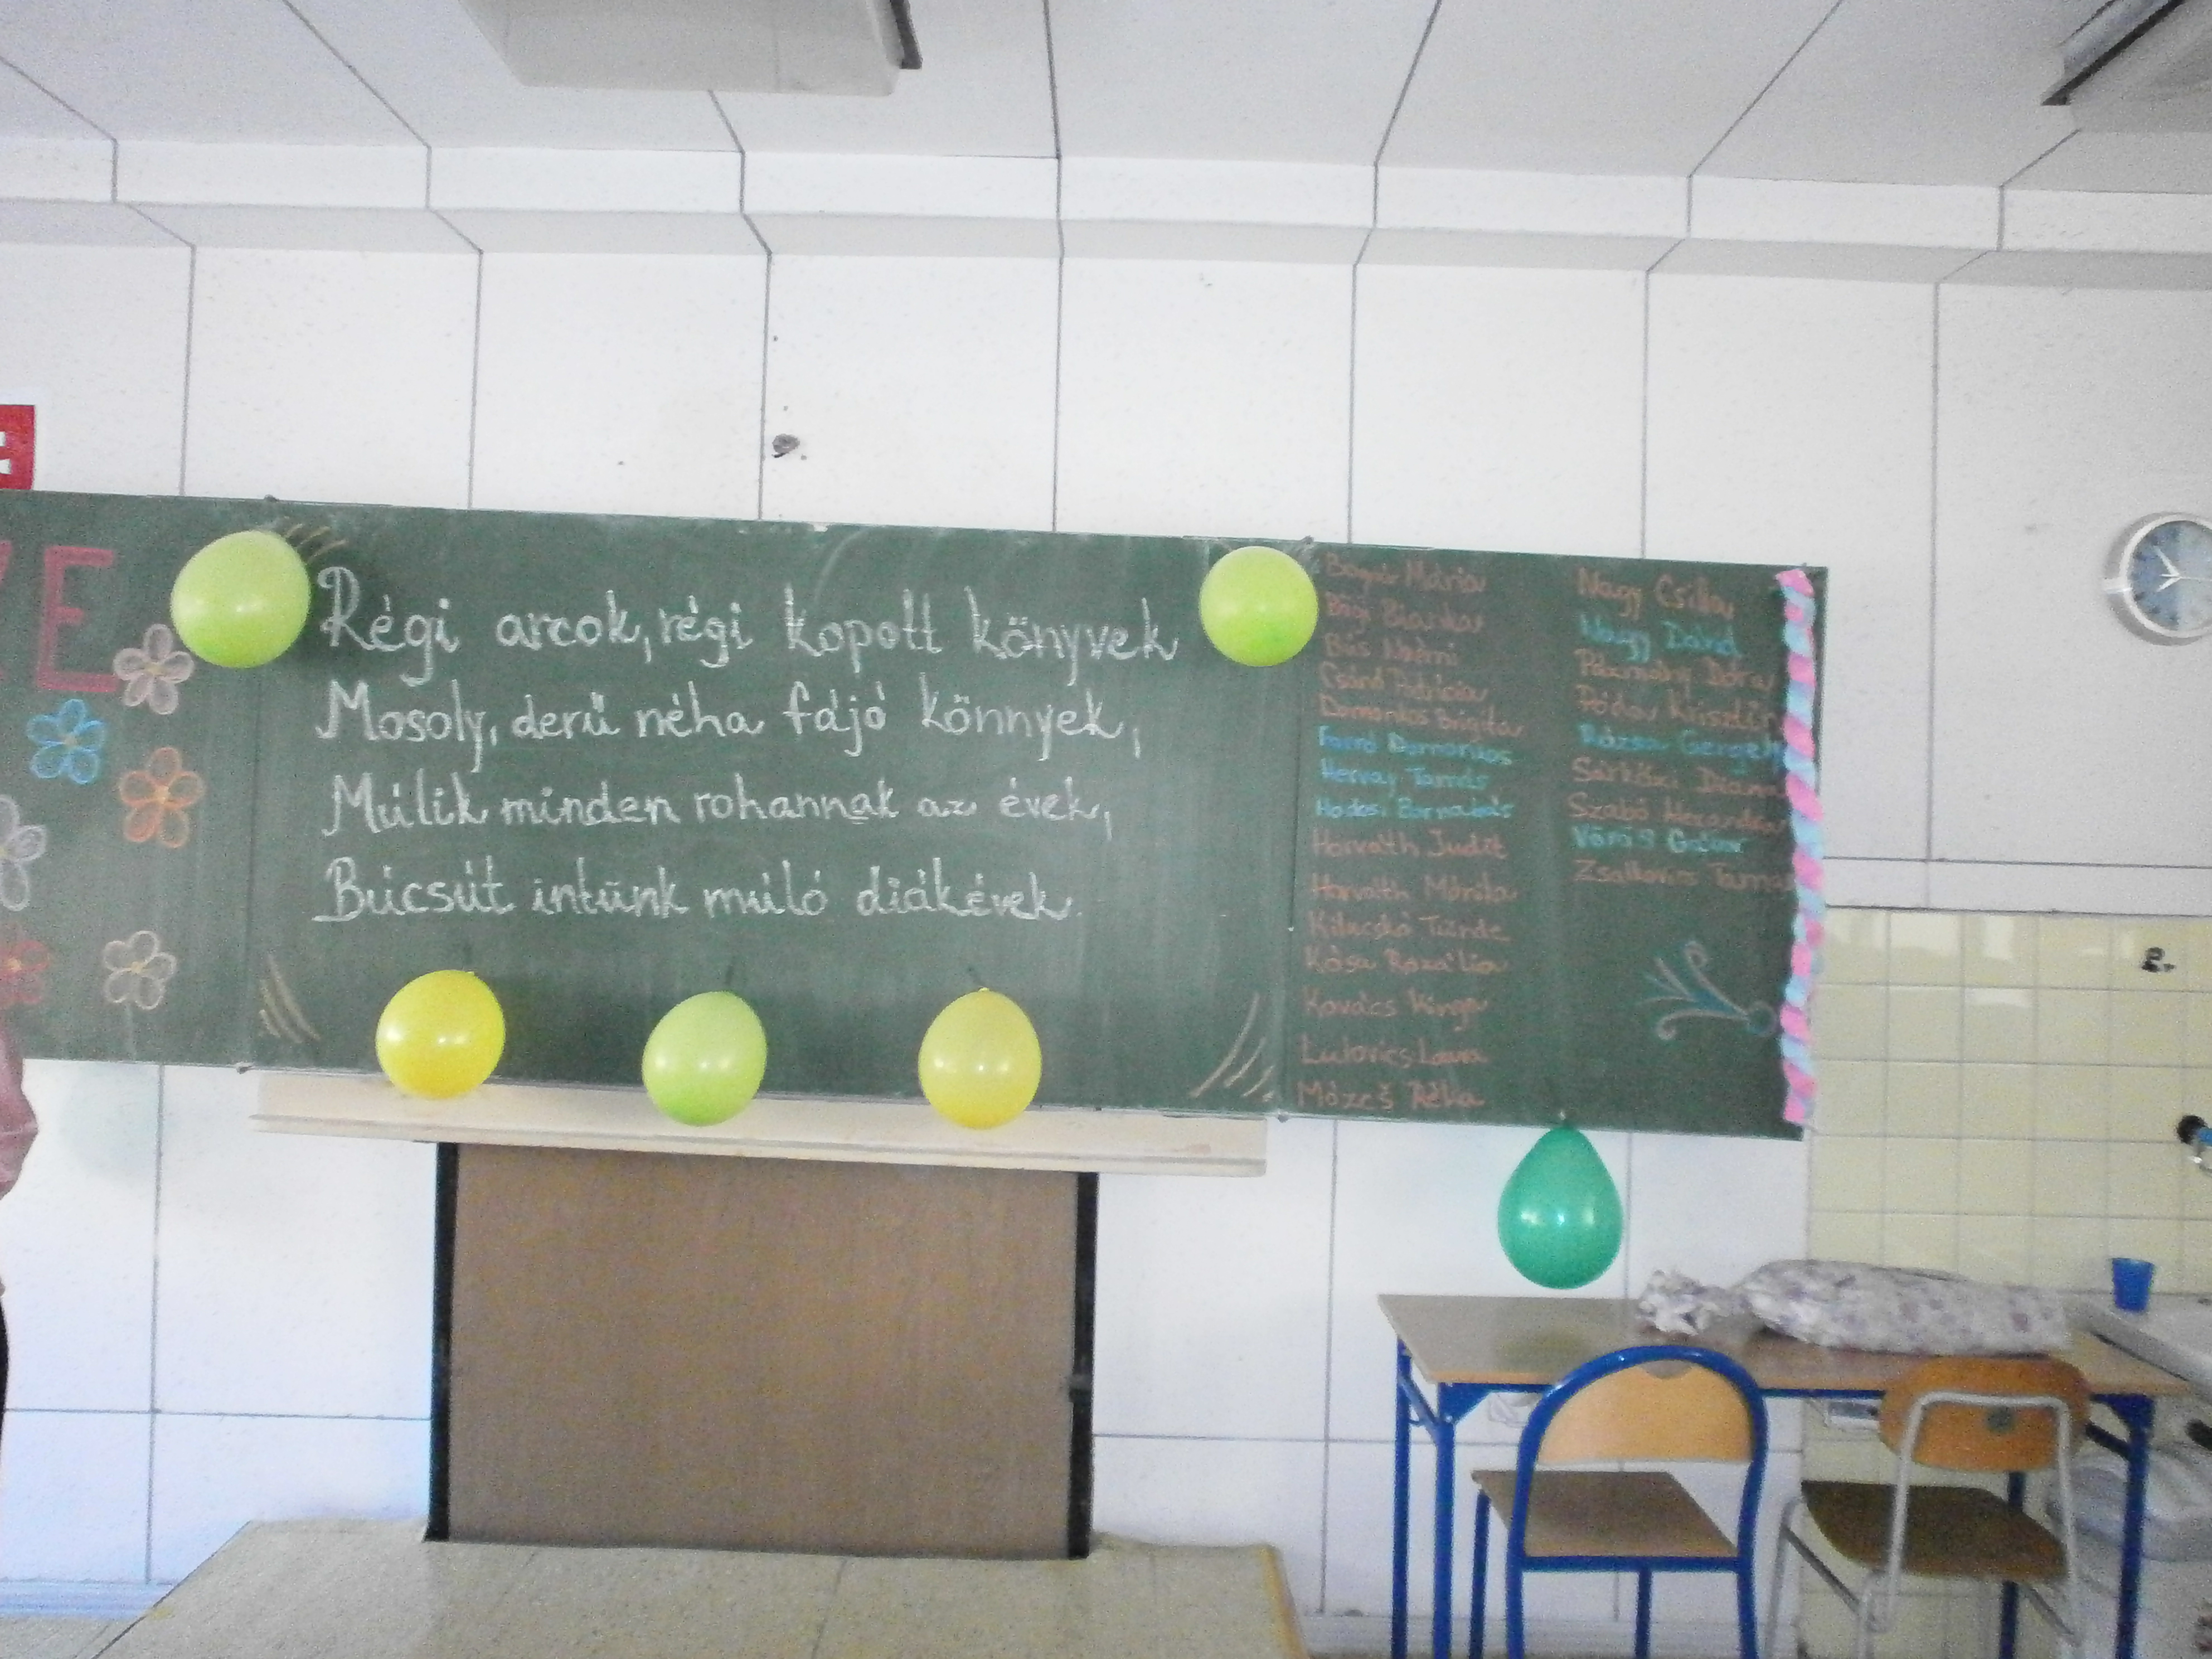 E
Régi arcok, régi kopott könyvek
Mosoly, derű néha fájó könnyek,
Múlik minden rohannak az évek,
Búcsút intünk múló diákévek.
Mária
Bögi Bianka
Bús Noémi
Csánó Patrícia
Domonkos Brigitta
Farró Domonkos
Hervay Tamás
Hodosi Barnabás
Horváth Judit
Horváth Mónika
Kilacskó Tünde
Kósa Rozália
Kovács Kinga
Lutovics Laura
Mózes Réka
Nagy Csilla
Nagy Dávid
Pázmány Dóra
Póda Krisztin
Rózsa Gergely
Sárközi Diana
Szabó
Vörös Gábor
Tamar